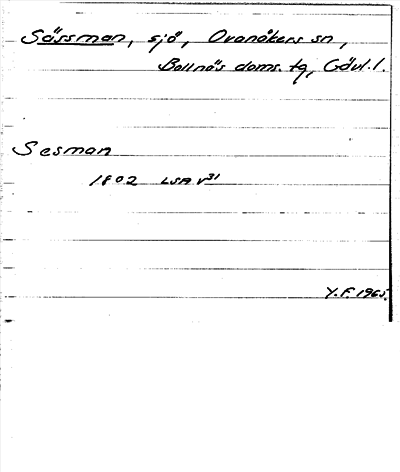 Sässman, sjö, Ovanåkers sn,
Bollnäs doms. tg, Gävl. l.
Sesman
1802 LSA V31
Y.F. 1965.